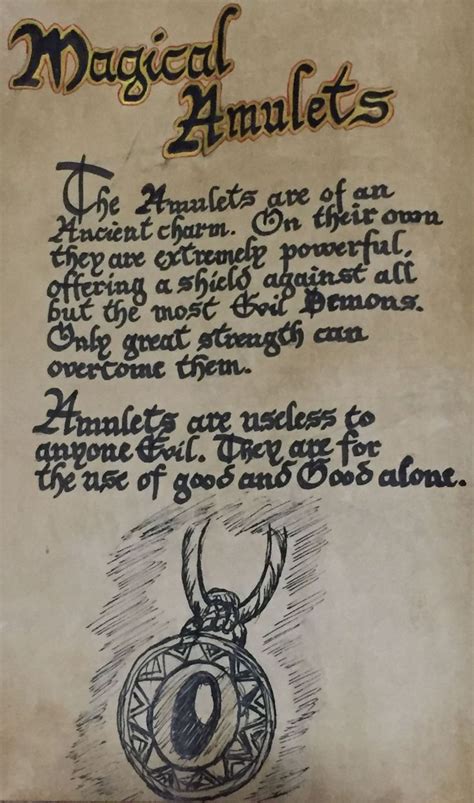 Magical
Amulets
The Amulets are of an
Ancient charm. On their own
they are extremely powerful,
offering a shield against all
but the most Evil Demons.
Only great strength can
overcome them.
Amulets are useless to
anyone Evil. They are for
the use of good and Good alone.